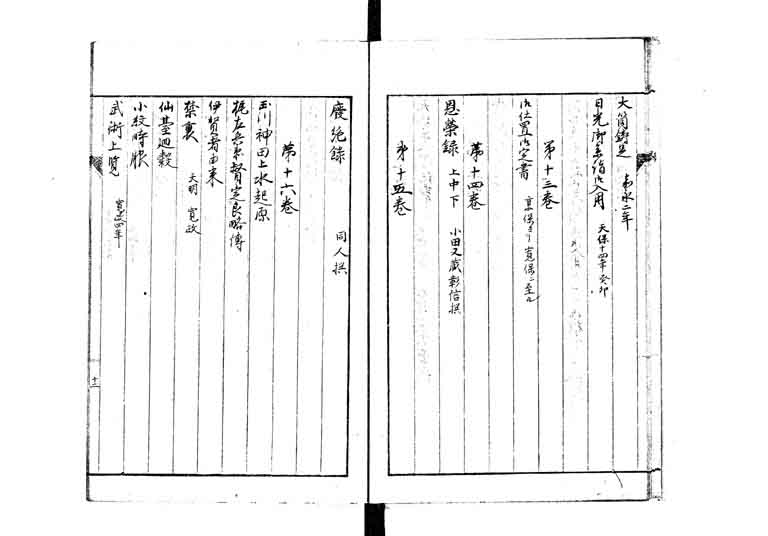 大筒鋳立 嘉永二年
日光御参詣御入用 天保十四年癸卯
第十三巻
御仕置御定書 享保ヨリ寛保ニ至ル
第十四巻
恩栄録 上中下 小田又蔵彰信撰
第十五巻
廃絶録 同人撰
第十六巻
玉川神田上水起原
梶左兵衛督定良略傳
伊賢者由来
禁裏 天明 寛政
仙臺廻穀
小紋時服
武術上覧 寛政四年
十二